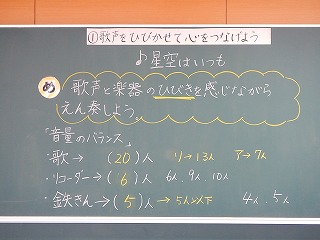 ①歌声をひびかせて心をつなげよう
♪星空はいつも
め 歌声と楽器のひびきを感じながら
えん奏しよう。
「音量のバランス」
・歌→(20)人 リ→13人 ア→7人
・リコーダー→(6)人 6人、9人、10人
・鉄きん→(5)人→5人以下 4人、5人